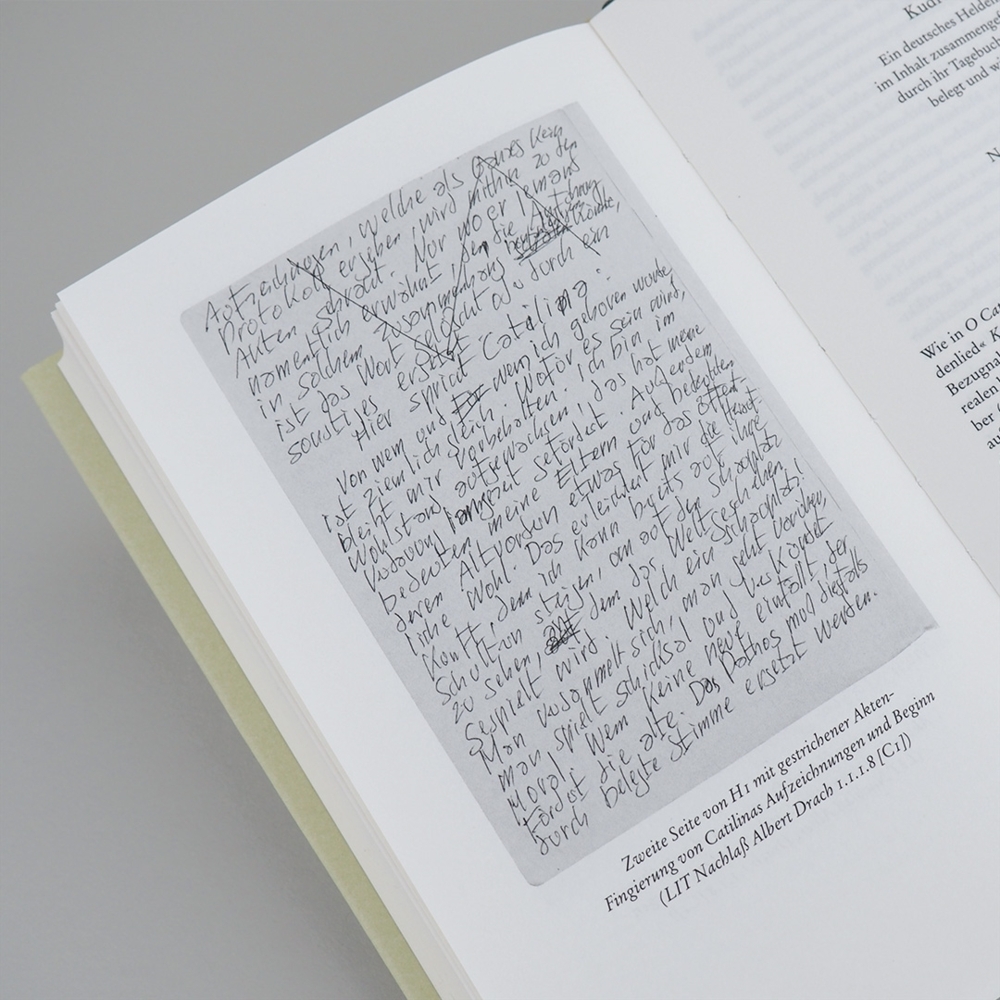 Aufzeichnungen, welche als Ganzes kein
Protokoll ergeben, wird mithin zu den
Akten schrott. Nur wo er jemans
namentlich erwähnt, den die Achtung
in solchem Zusammenhang könnte,
ist das Wort gelöscht oder durch ein
sonstiges ersetzt.
Hier spricht Catilina:
Von wem und wem ich geboren wurde,
ist ziemlich gleich. Wofür es sein wird,
bleibt mir vorbehalten. Ich bin im
Wohlstand aufgewachsen, das hat meine
gefördert. Außerdem
bedeuten meine Eltern und bedeuteten
deren Altvordern etwas für das öffent-
liche Wohl. Das erleichtert mir die
kunft, denn ich kann bereits auf ihre
Schultern steigen, um auf den Schauplatz
zu sehen, auf dem das Weltgeschehen
gespielt wird. Welch ein Schauplatz!
Man versammelt sich, man geht vorüber,
man spielt Schicksal und verkündet
Moral. Wem keine neue einfällt, der
fördert die alte. Das Pathos muß diesfalls
durch belegte Stimme ersetzt werden.
Zweite Seite von H1 mit gestrichener Akten-
Fingierung von Catilinas Aufzeichnungen und Beginn
(LIT Nachlaß Albert Drach 1.1.1.8 [C1])
Ein deutsches Helden
im Inhalt zusammengef
durch ihr Tagebuch
belegt und wi
N
Wie in O Cat
denlied« K
Bezugna
realen
ber